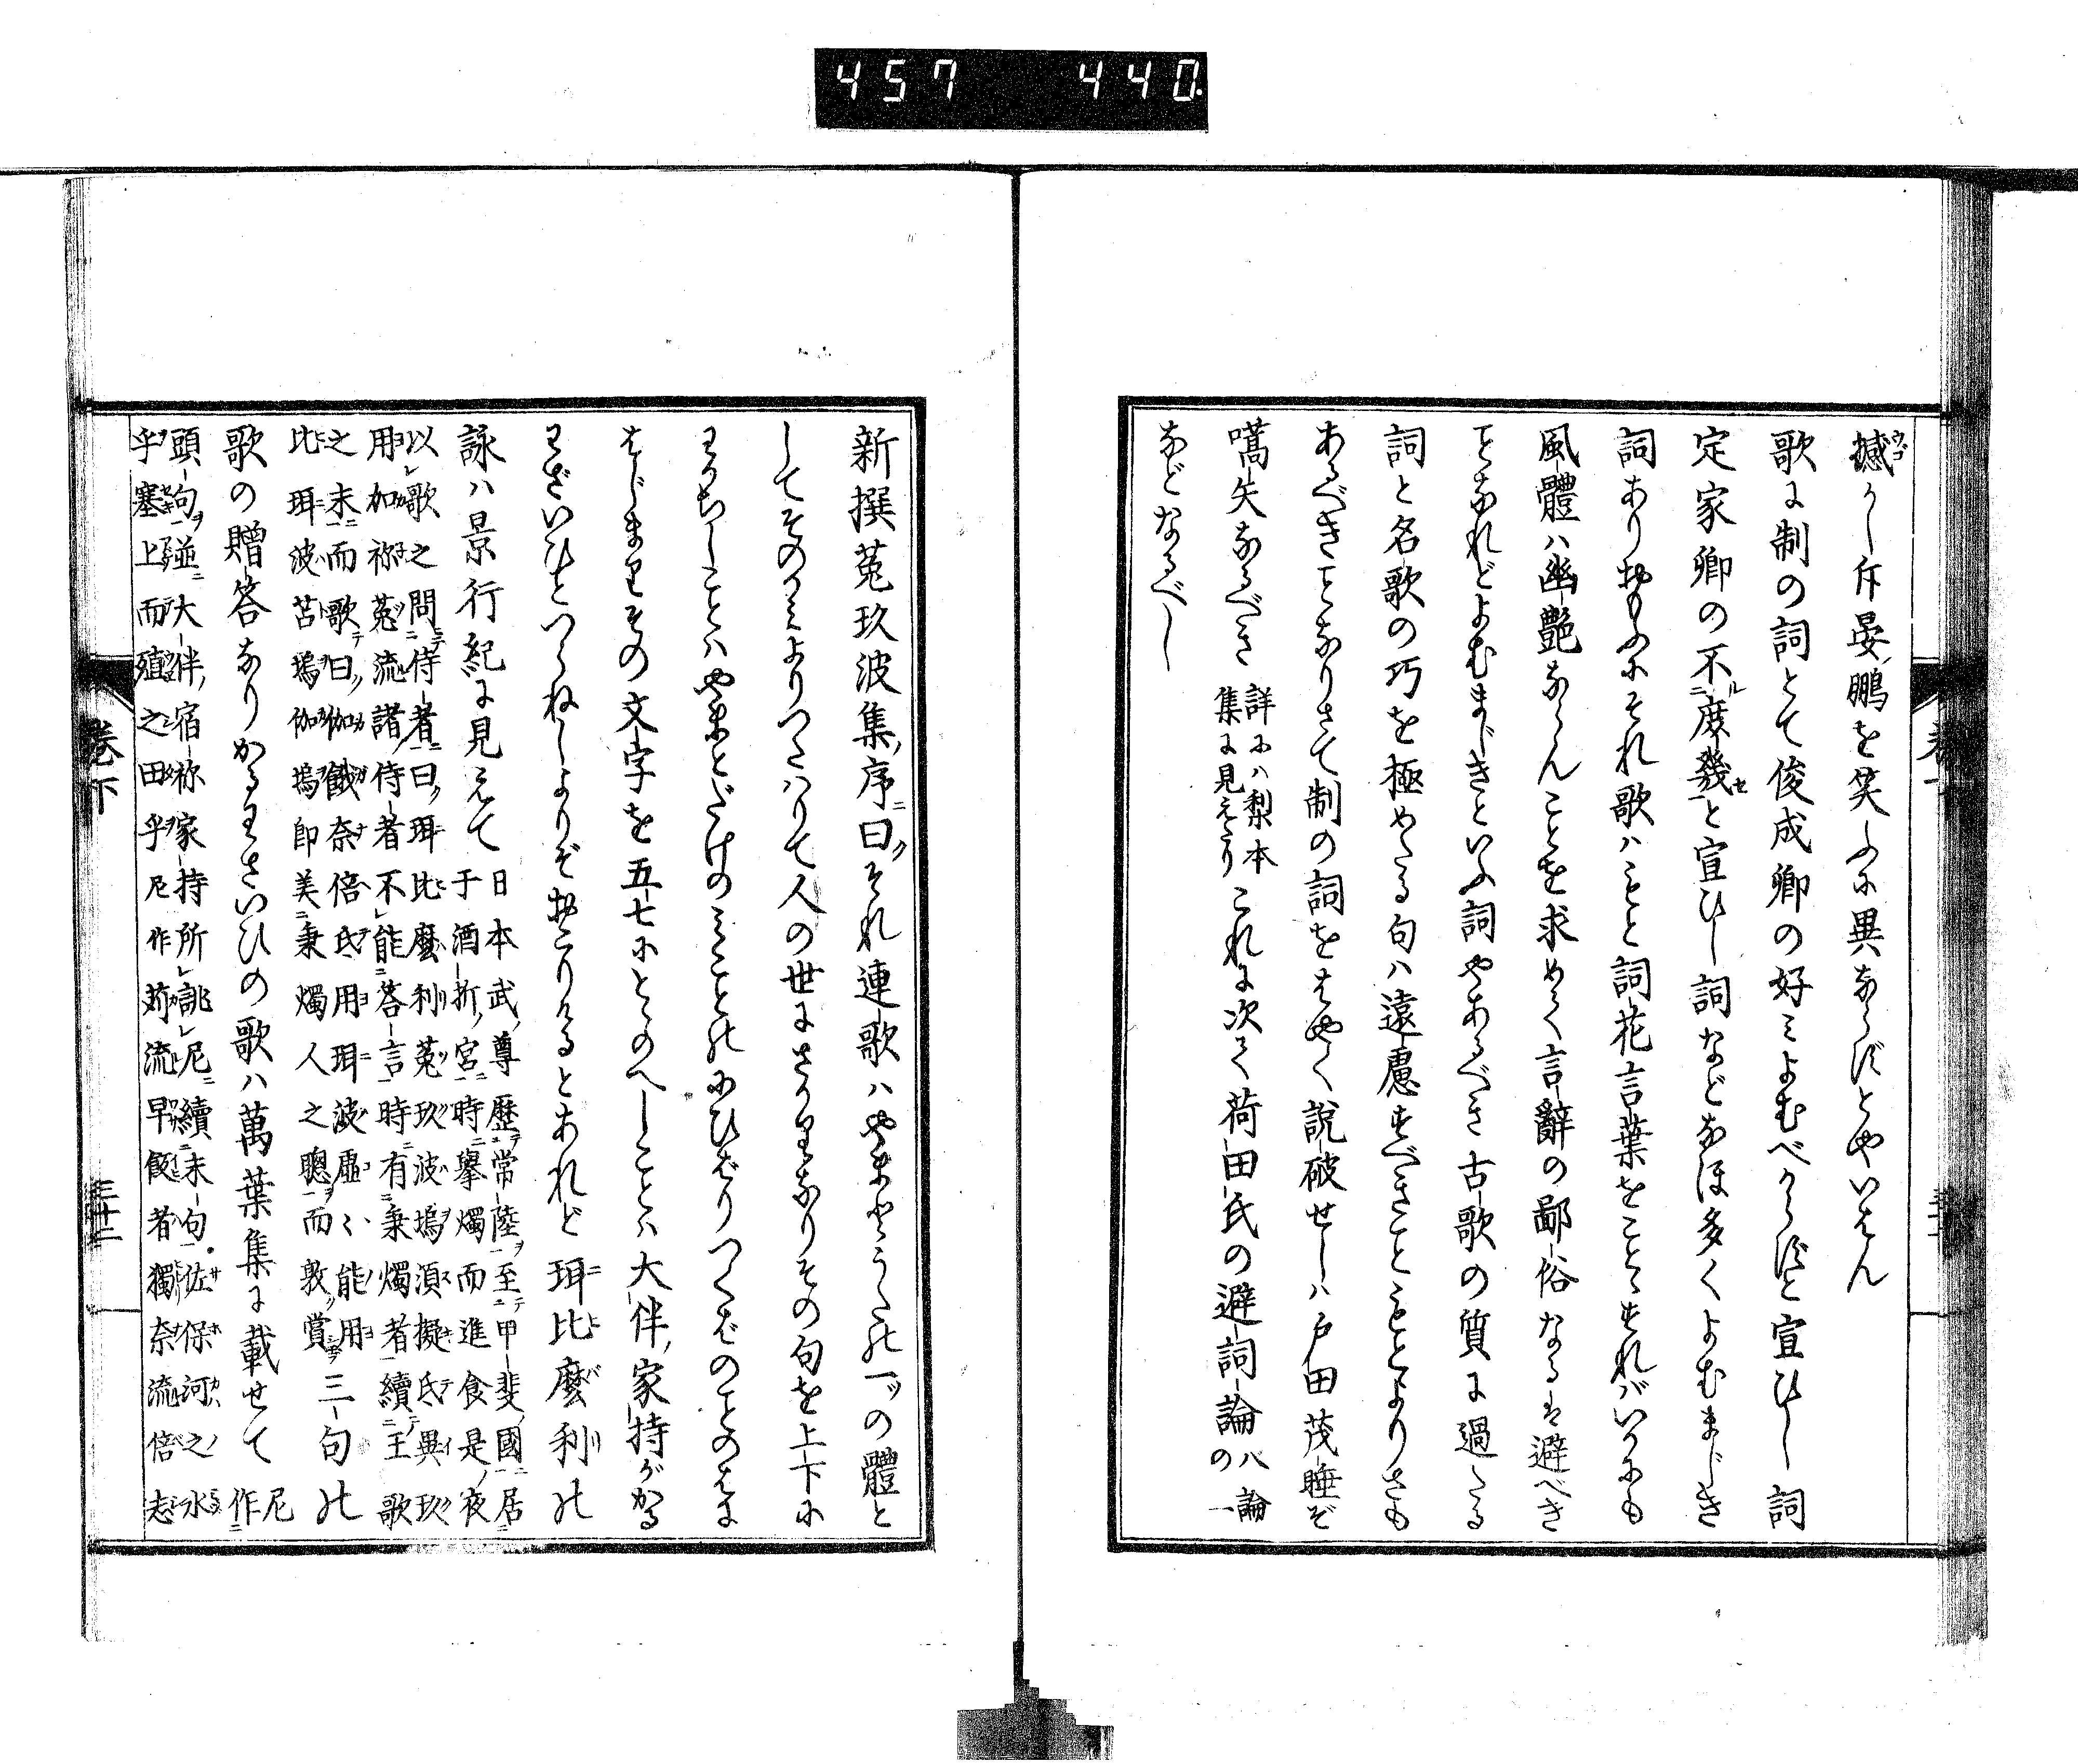 457 440
撼かし斥晏鵬を笑ふに異ならずとやいはん
歌に制の詞とて俊成卿の好みよむべからずと宣ひし詞
定家卿の不庶幾と宣ひし詞などなほ多くよむまじき
詞ありおもふにそれ歌はもと詞花言葉をことゝすればいかにも
風體ハ幽艶ならんことを求めて言辭の鄙俗なるは避べき
ことなれどよむまじきといふ詞やあるべき古歌の質に過たる
詞と名歌の巧を極めたる句ハ遠慮すべきこともとよりさも
あるべきことなりさて制の詞をはやく説破せしハ戸田茂睡ぞ
嚆矢なるべき
詳にハ梨本
集に見えたり
これに次て荷田氏の避詞論
八論
の一
などなるべし
新撰菟玖波集序曰それ連歌ハやまとうたの一ツの體と
してそのかみよりつたハりて人の世にさかりなりその句を上下に
わかちしことハやまとだけのみことのにひばりつくばのことのはに
はじまりその文字を五七にとゝのへしことハ大伴家持がかる
わざいひとつらねしよりぞおこりけるとあれど珥比麼利の
詠ハ景行紀に見えて
日本武尊歴常陸至甲斐國居
于酒折宮時擧燭而進食是夜
以歌之問侍者曰珥比麼利菟玖波塢須擬氐異玖
用加禰菟流諸侍者不能答言時有秉燭者續王歌
之末而歌曰伽餓奈倍氐用珥波虚々能用
比珥波苫塢伽塢即美秉燭人之聰而敦賞
三句の
歌の贈答なりかるわさいひの歌ハ萬葉集に載せて
尼作
頭句並大伴宿禰家持所誂尼續末句佐保河之水
乎塞上而殖之田乎尼作苅流早飯者獨奈流倍志
巻下
三十二